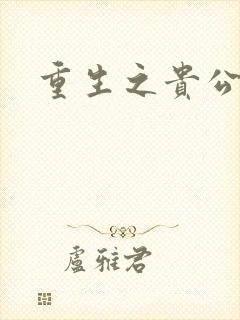 重生之貴公
盧雅君